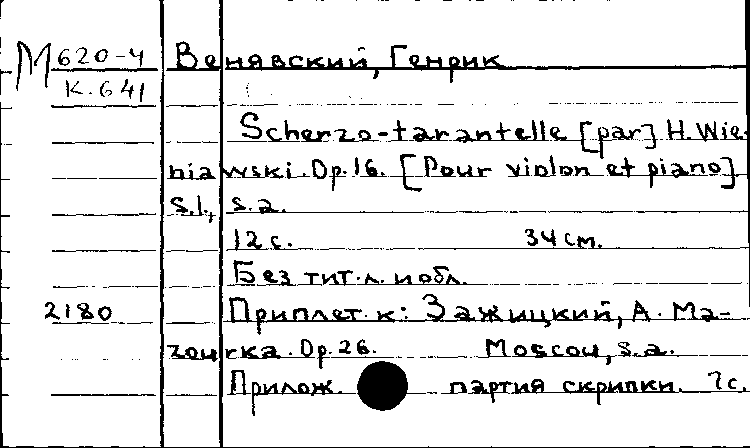 М 620-4 Венявский, Генрик
К.641
Scherzo-tarantelle [par] H. Wie-
niawski. Op.16. [Pour violon et piano]
S.l., s.a.
12 с. 34 см.
Без тит.л. и обл.
2180 Приплет. к: Зажицкий, А. Ma-
zourka. Op.26. Moscou, s.a.
Прилож. партия скрипки. 7с.